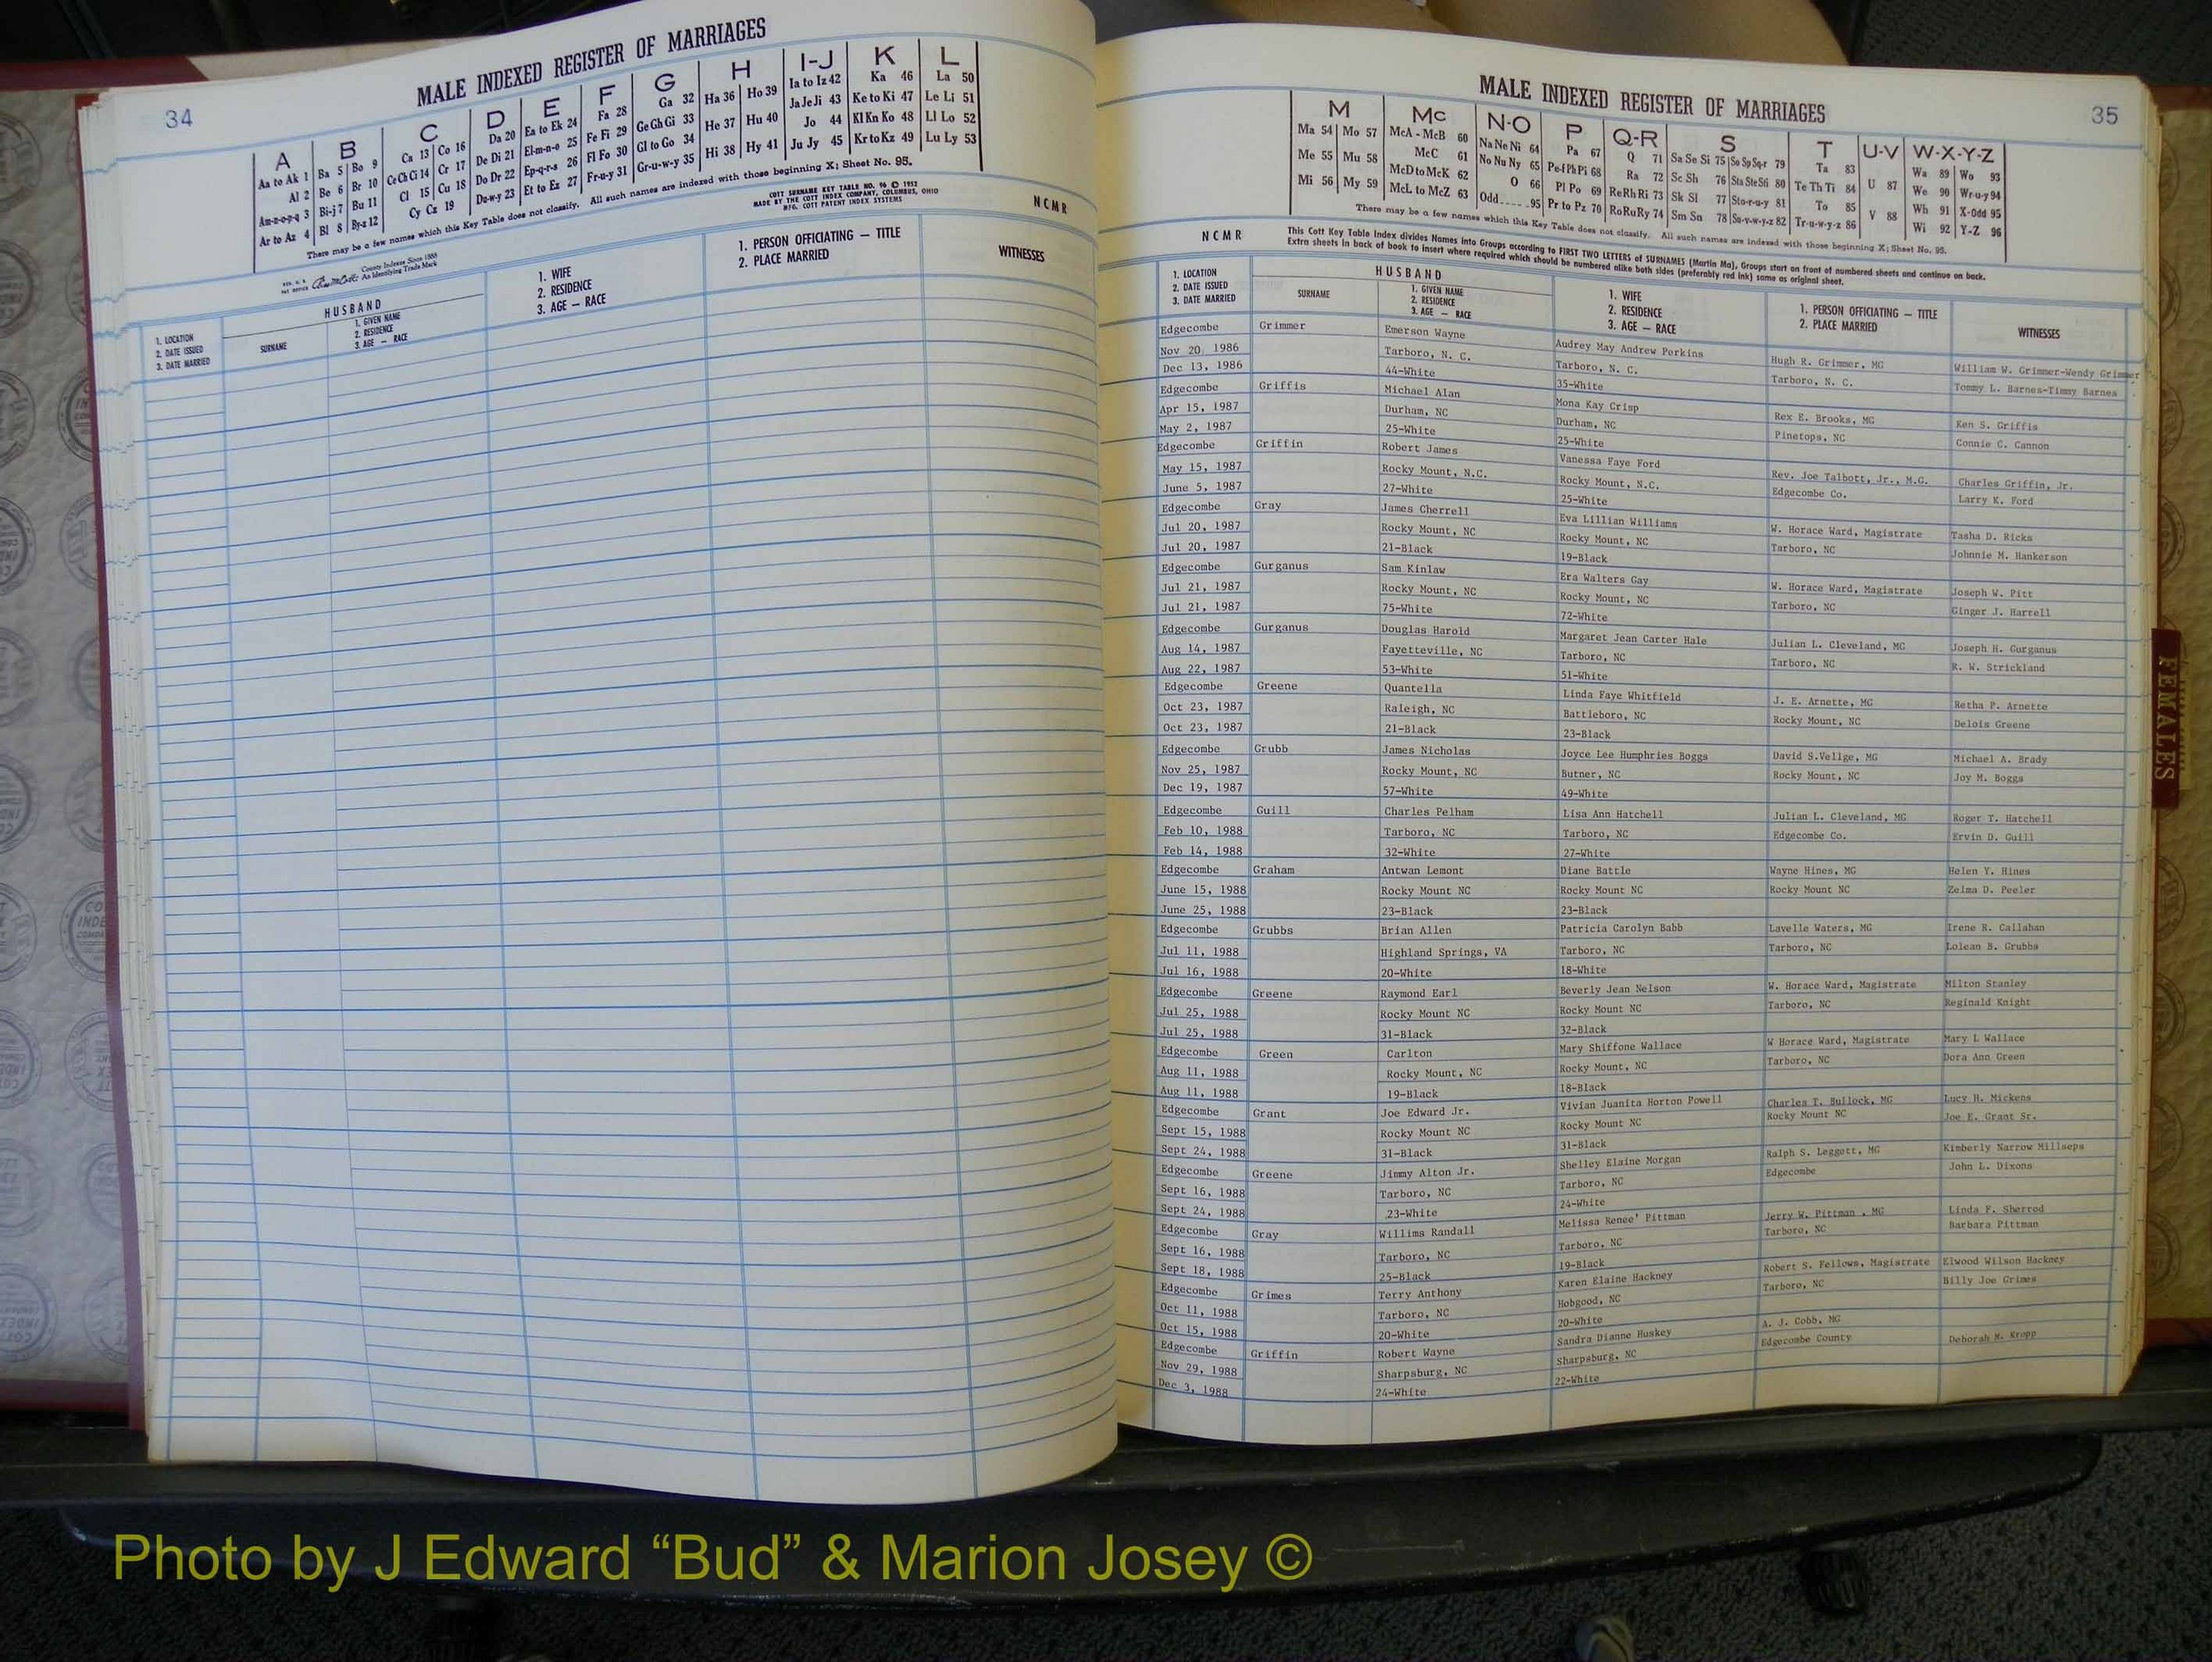 34
MALE INDEXED REGISTER OF MARRIAGES
A B C D E F G H I-J K L
Aa to Ak 1 Ba 5 Bo 9 Ca 13 Co 16 Da 20 Ea to Ek 24 Fa 28 Ga 32 Ha 36 Ho 39 Ia to Iz 42 Ka 46 La 50
Al 2 Be 6 Br 10 Ce Ch Ci 14 Cr 17 De Di 21 El-m-n-o 25 Fe Fi 29 Ge Gh Gi 33 He 37 Hu 40 Ja Je Ji 43 Ke to Ki 47 Le Li 51
Am-n-o-p-q 3 Bi-j 7 Bu 11 Cl 15 Cu 18 Do Dr 22 Ep-q-r-s 26 Fl Fo 30 Gl to Go 34 Hi 38 Hy 41 Jo 44 Kl Kn Ko 48 Ll Lo 52
Ar to Az 4 Bl 8 By-z 12 Cy Cz 19 Du-w-y 23 Et to Ez 27 Fr-u-y 31 Gr-u-w-y 35 Ju Jy 45 Kr to Kz 49 Lu Ly 53
There may be a few names which this Key Table does not classify. All such names are indexed with those beginning X; Sheet No. 95.
COTT SURNAME KEY TABLE NO. 96 © 1952
MADE BY THE COTT INDEX COMPANY, COLUMBUS, OHIO
MFG. COTT PATENT INDEX SYSTEMS
NCMR
County Indexes Since 1888
An Identifying Trade Mark
1. LOCATION
2. DATE ISSUED
3. DATE MARRIED
HUSBAND
SURNAME
1. GIVEN NAME
2. RESIDENCE
3. AGE — RACE
1. WIFE
2. RESIDENCE
3. AGE — RACE
1. PERSON OFFICIATING — TITLE
2. PLACE MARRIED
WITNESSES
MALE INDEXED REGISTER OF MARRIAGES
35
M Mc N-O P Q-R S T U-V W-X-Y-Z
Ma 54 Mo 57 McA - McB 60 Na Ne Ni 64 Pa 67 Q 71 Sa Se Si 75 So Sp Sq-r 79 Ta 83 U 87 Wa 89 Wo 93
Me 55 Mu 58 McC 61 No Nu Ny 65 Pe-f Ph Pi 68 Ra 72 Sc Sh 76 Sta Ste Sti 80 Te Th Ti 84 V 88 We 90 Wr-u-y 94
Mi 56 My 59 McD to McK 62 O 66 Pl Po 69 Re Rh Ri 73 Sk Sl 77 Sto-r-u-y 81 To 85 Wh 91 X-Odd 95
McL to McZ 63 Odd 95 Pr to Pz 70 Ro Ru Ry 74 Sm Sn 78 Su-v-w-y-z 82 Tr-u-w-y-z 86 Wi 92 Y-Z 96
There may be a few names which this Key Table does not classify. All such names are indexed with those beginning X; Sheet No. 95.
NCMR
This Cott Key Table Index divides Names into Groups according to FIRST TWO LETTERS of SURNAMES (Martin Ma), Groups start on front of numbered sheets and continue on back.
Extra sheets in back of book to insert where required which should be numbered alike both sides (preferably red ink) same as original sheet.
1. LOCATION
2. DATE ISSUED
3. DATE MARRIED
HUSBAND
SURNAME
1. GIVEN NAME
2. RESIDENCE
3. AGE — RACE
1. WIFE
2. RESIDENCE
3. AGE — RACE
1. PERSON OFFICIATING — TITLE
2. PLACE MARRIED
WITNESSES
Edgecombe Grimmer Emerson Wayne Audrey May Andrew Perkins Hugh R. Grimmer, MG William W. Grimmer-Wendy Grimmer
Nov 20 1986 Tarboro, N. C. Tarboro, N. C. Tarboro, N. C. Tommy L. Barnes-Timmy Barnes
Dec 13, 1986 44-White 35-White
Edgecombe Griffis Michael Alan Mona Kay Crisp Rex E. Brooks, MG Ken S. Griffis
Apr 15, 1987 Durham, NC Durham, NC Pinetops, NC Connie C. Cannon
May 2, 1987 25-White 25-White
Edgecombe Griffin Robert James Vanessa Faye Ford Rev. Joe Talbott, Jr., M.G. Charles Griffin, Jr.
May 15, 1987 Rocky Mount, N.C. Rocky Mount, N.C. Edgecombe Co. Larry K. Ford
June 5, 1987 27-White 25-White
Edgecombe Gray James Cherrell Eva Lillian Williams W. Horace Ward, Magistrate Tasha D. Ricks
Jul 20, 1987 Rocky Mount, NC Rocky Mount, NC Tarboro, NC Johnnie M. Hankerson
Jul 20, 1987 21-Black 19-Black
Edgecombe Gurganus Sam Kinlaw Era Walters Gay W. Horace Ward, Magistrate Joseph W. Pitt
Jul 21, 1987 Rocky Mount, NC Rocky Mount, NC Tarboro, NC Ginger J. Harrell
Jul 21, 1987 75-White 72-White
Edgecombe Gurganus Douglas Harold Margaret Jean Carter Hale Julian L. Cleveland, MG Joseph H. Gurganus
Aug 14, 1987 Fayetteville, NC Tarboro, NC Tarboro, NC R. W. Strickland
Aug 22, 1987 53-White 51-White
Edgecombe Greene Quantella Linda Faye Whitfield J. E. Arnette, MG Retha P. Arnette
Oct 23, 1987 Raleigh, NC Battleboro, NC Rocky Mount, NC Delois Greene
Oct 23, 1987 21-Black 23-Black
Edgecombe Grubb James Nicholas Joyce Lee Humphries Boggs David S.Vellge, MG Michael A. Brady
Nov 25, 1987 Rocky Mount, NC Butner, NC Rocky Mount, NC Joy M. Boggs
Dec 19, 1987 57-White 49-White
Edgecombe Guill Charles Pelham Lisa Ann Hatchell Julian L. Cleveland, MG Roger T. Hatchell
Feb 10, 1988 Tarboro, NC Tarboro, NC Edgecombe Co. Ervin D. Guill
Feb 14, 1988 32-White 27-White
Edgecombe Graham Antwan Lemont Diane Battle Wayne Hines, MG Helen Y. Hines
June 15, 1988 Rocky Mount NC Rocky Mount NC Rocky Mount NC Zelma D. Peeler
June 25, 1988 23-Black 23-Black
Edgecombe Grubbs Brian Allen Patricia Carolyn Babb Lavelle Waters, MG Irene R. Callahan
Jul 11, 1988 Highland Springs, VA Tarboro, NC Tarboro, NC Lolean B. Grubbs
Jul 16, 1988 20-White 18-White
Edgecombe Greene Raymond Earl Beverly Jean Nelson W. Horace Ward, Magistrate Milton Stanley
Jul 25, 1988 Rocky Mount NC Rocky Mount NC Tarboro, NC Reginald Knight
Jul 25, 1988 31-Black 32-Black
Edgecombe Green Carlton Mary Shiffone Wallace W Horace Ward, Magistrate Mary L Wallace
Aug 11, 1988 Rocky Mount, NC Rocky Mount, NC Tarboro, NC Dora Ann Green
Aug 11, 1988 19-Black 18-Black
Edgecombe Grant Joe Edward Jr. Vivian Juanita Horton Powell Charles T. Bullock, MG Lucy H. Mickens
Sept 15, 1988 Rocky Mount NC Rocky Mount NC Rocky Mount NC Joe E. Grant Sr.
Sept 24, 1988 31-Black 31-Black
Edgecombe Greene Jimmy Alton Jr. Shelley Elaine Morgan Ralph S. Leggett, MG Kimberly Narrow Millseps
Sept 16, 1988 Tarboro, NC Tarboro, NC Edgecombe John L. Dixons
Sept 24, 1988 23-White 24-White
Edgecombe Gray Willims Randall Melissa Renee' Pittman Jerry W. Pittman , MG Linda F. Sherrod
Sept 16, 1988 Tarboro, NC Tarboro, NC Tarboro, NC Barbara Pittman
Sept 18, 1988 25-Black 19-Black
Edgecombe Grimes Terry Anthony Karen Elaine Hackney Robert S. Fellows, Magistrate Elwood Wilson Hackney
Oct 11, 1988 Tarboro, NC Hobgood, NC Tarboro, NC Billy Joe Grimes
Oct 15, 1988 20-White 20-White
Edgecombe Griffin Robert Wayne Sandra Dianne Huskey A. J. Cobb, MG Deborah M. Kropp
Nov 29, 1988 Sharpsburg, NC Sharpsburg, NC Edgecombe County
Dec 3, 1988 24-White 22-White
FEMALES
Photo by J Edward “Bud” & Marion Josey ©